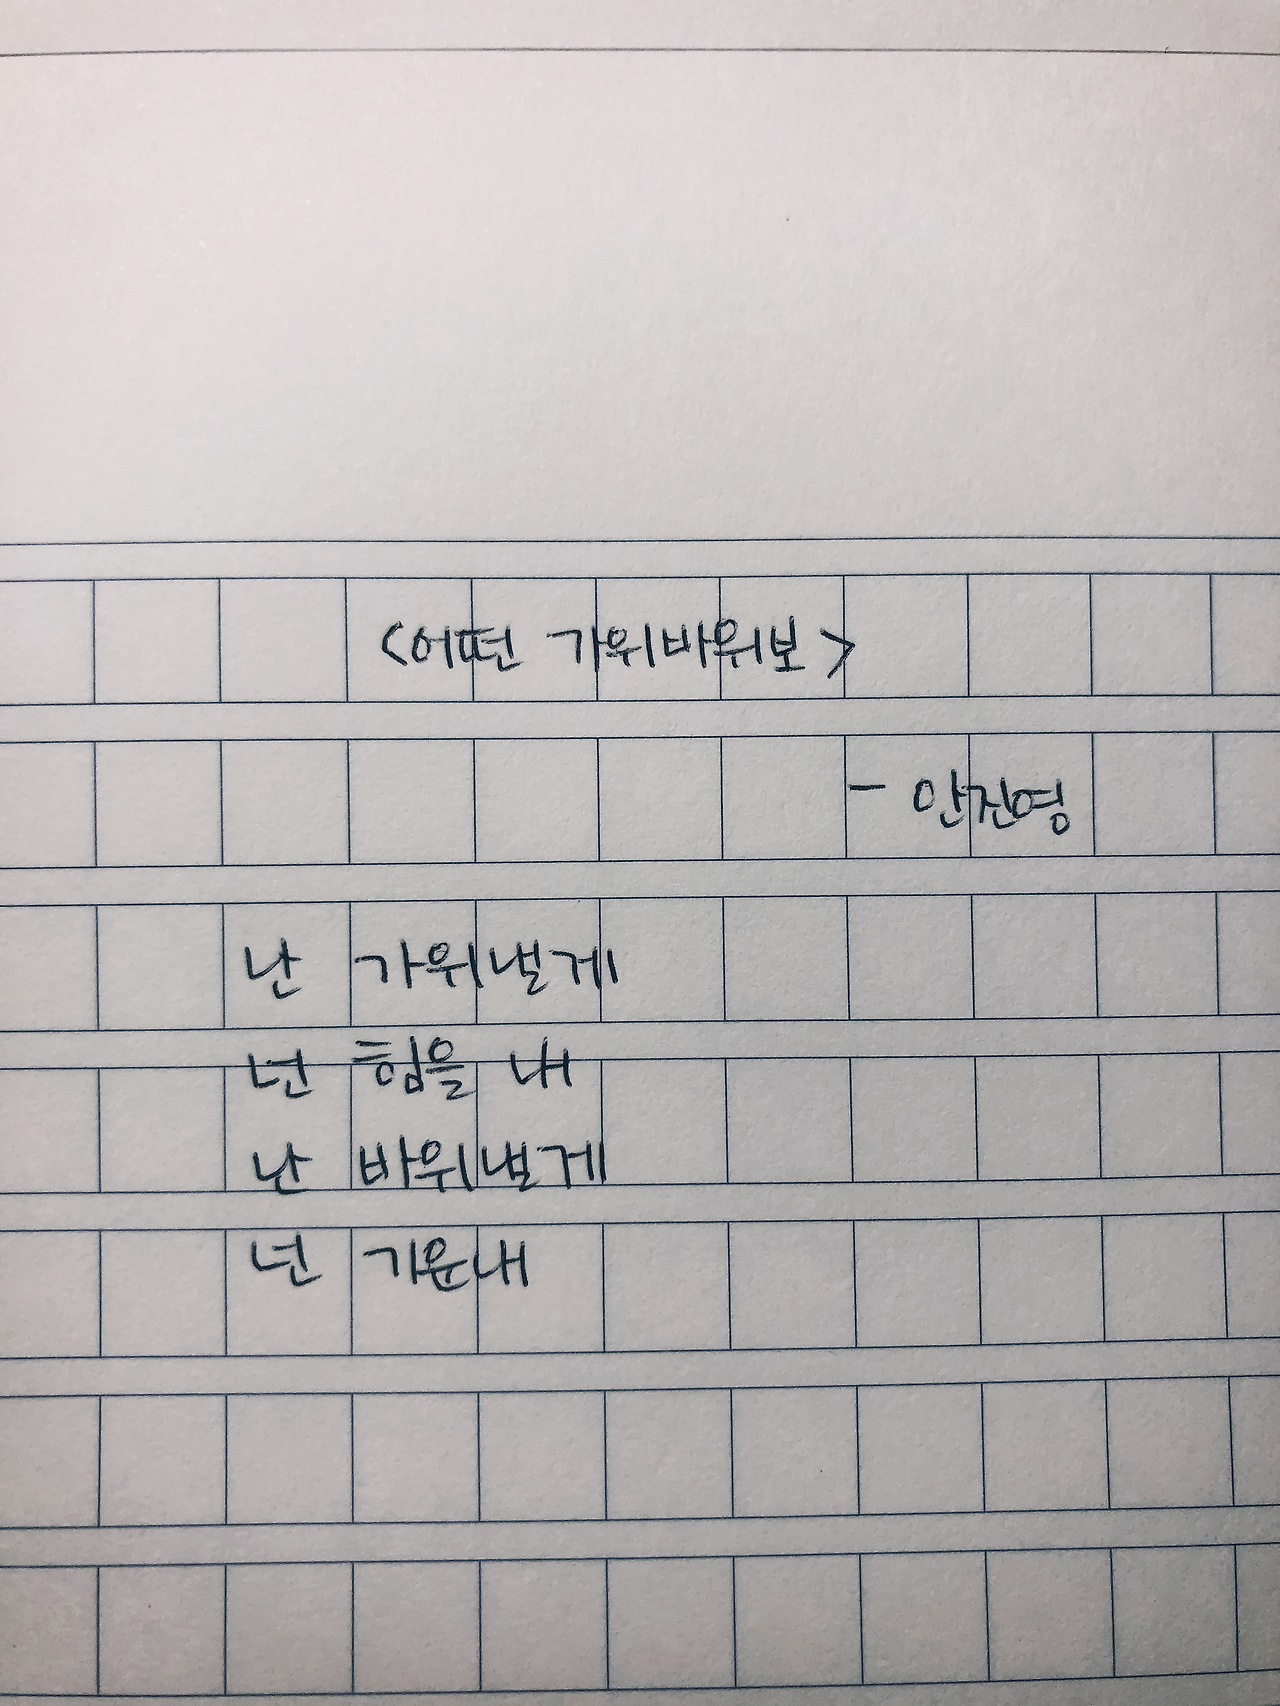 <어떤 가위바위보>
- 안진영
난 가위낼게
넌 힘을 내
난 바위낼게
넌 기운내